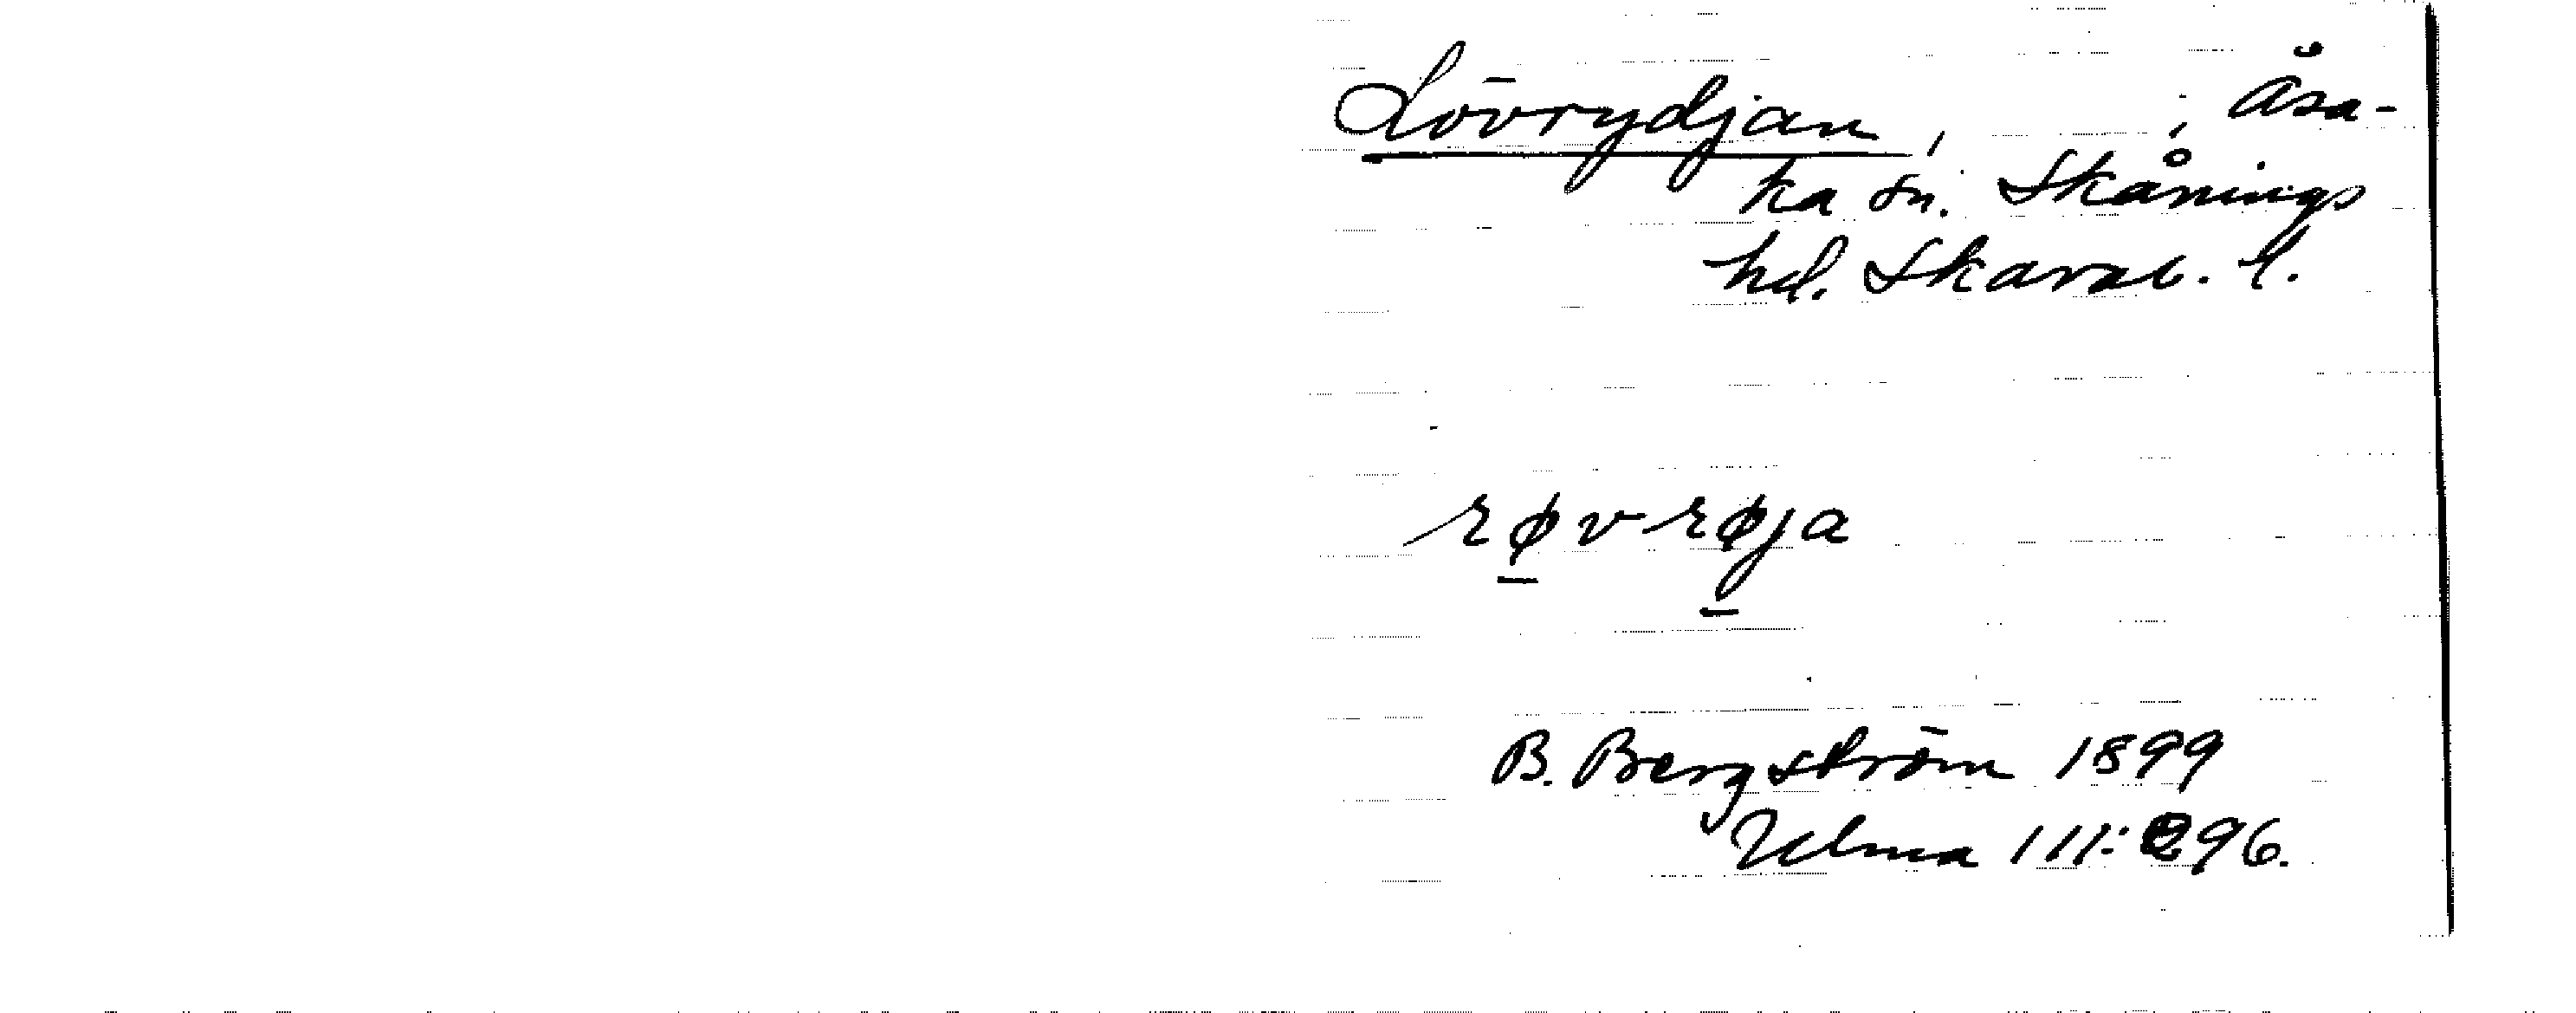 Lövrydjan, , Åsa-
ka sn. Skånings
hd. Skarab. l.
røvrøja
B. Bergström 1899
Ulma 111:296.